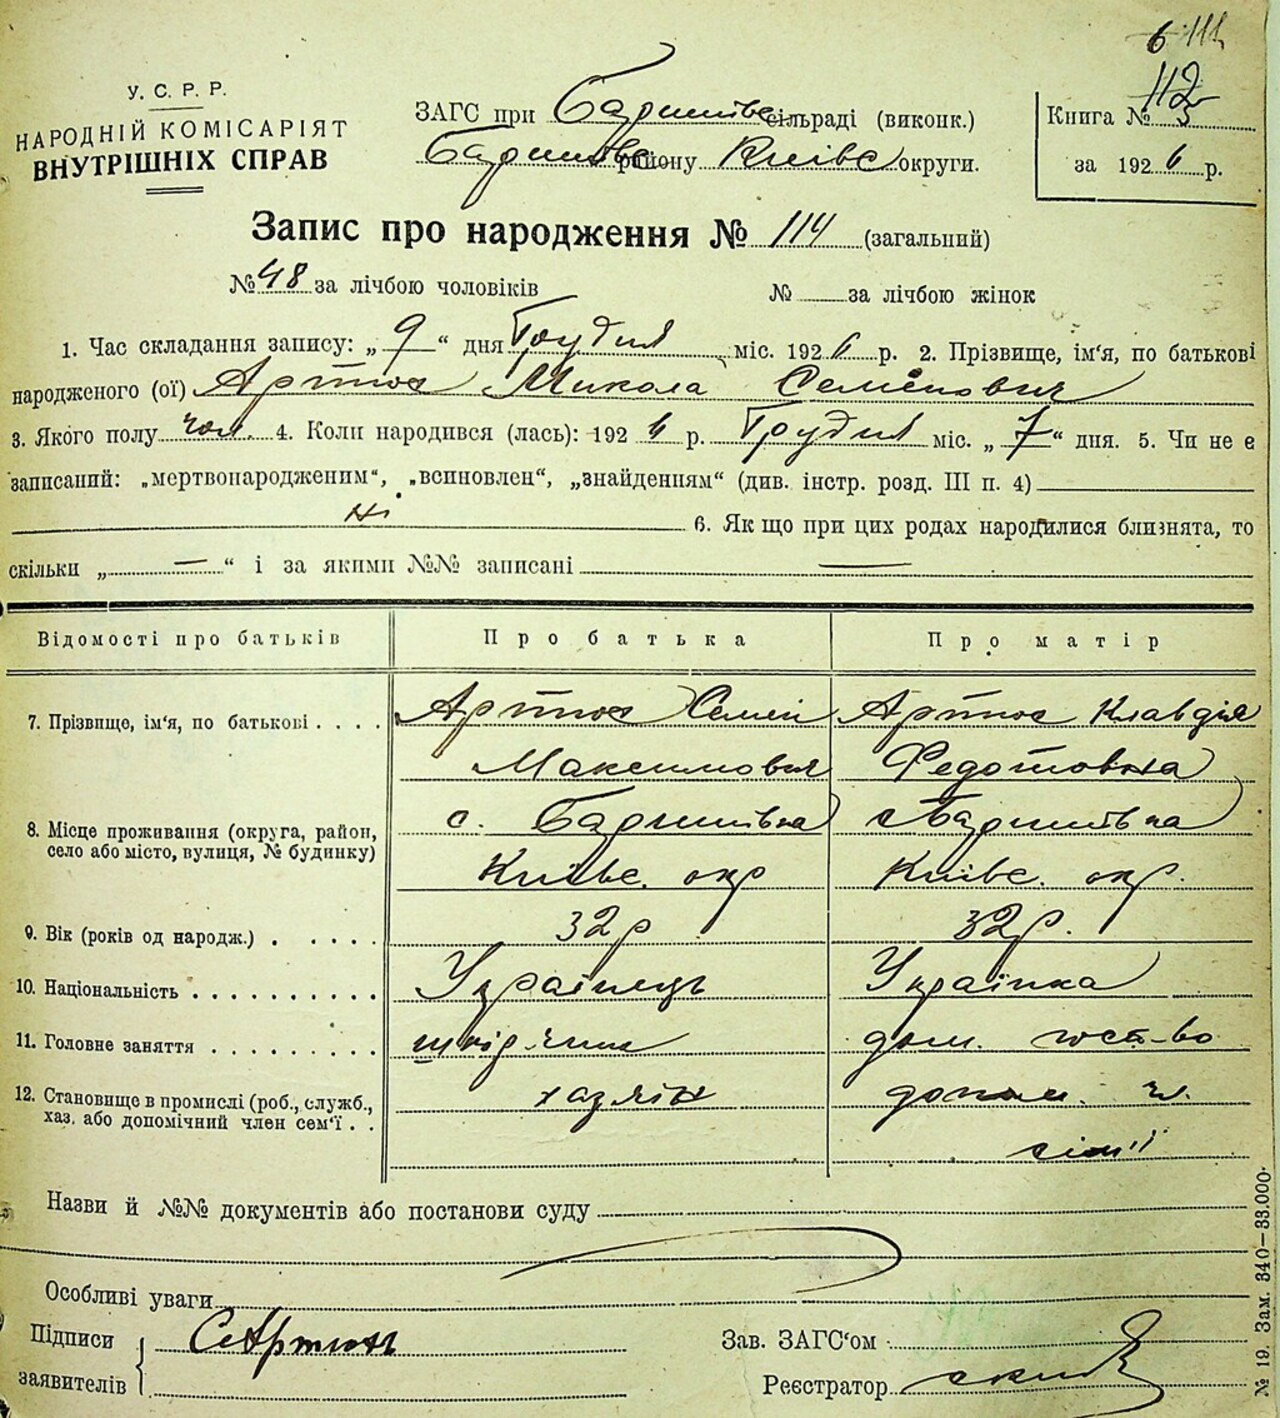 6 111
112
У. С. Р. Р.
НАРОДНІЙ КОМІСАРІЯТ
ВНУТРІШНІХ СПРАВ
ЗАГС при Баришівс сільраді (виконк.)
Баришівс району Київс округи.
Книга № 3
за 1926 р.
Запис про народження № 114 (загальний)
№ 48 за лічбою чоловіків № за лічбою жінок
1. Час складання запису: „ 9 “ дня Грудня міс. 1926 р. 2. Прізвище, ім'я, по батькові
народженого (ої) Артюх Микола Семенович
3. Якого полу чол. 4. Коли народився (лась): 1926 р. Грудня міс. „ 7 “ дня. 5. Чи не є
записаний: „мертвонародженим“, „всиновлен“, „знайденням“ (див. інстр. розд. III п. 4)
ні 6. Як що при цих родах народилися близнята, то
скільки „ — “ і за якими №№ записані —
Відомості про батьків Про батька Про матір
7. Прізвище, ім'я, по батькові . . . . Артюх Семен Артюх Клавдія
Максимович Федотовна
8. Місце проживання (округа, район, с. Баришівка с Баришівка
село або місто, вулиця, № будинку) Київс. окр Київс. окр.
9. Вік (років од народж.) . . . . . 32 р 32 р.
10. Національність . . . . . . . . . . Українець Українка
11. Головне заняття . . . . . . . . . дом. госп-во
12. Становище в промислі (роб., служб., хазяїн допом. чл.
хаз. або допомічний член сем'ї . . сімї
Назви й №№ документів або постанови суду
Особливі уваги
Підписи САртюх Зав. ЗАГС'ом
заявителів Реєстратор
№ 19. Зам. 340—33.000.